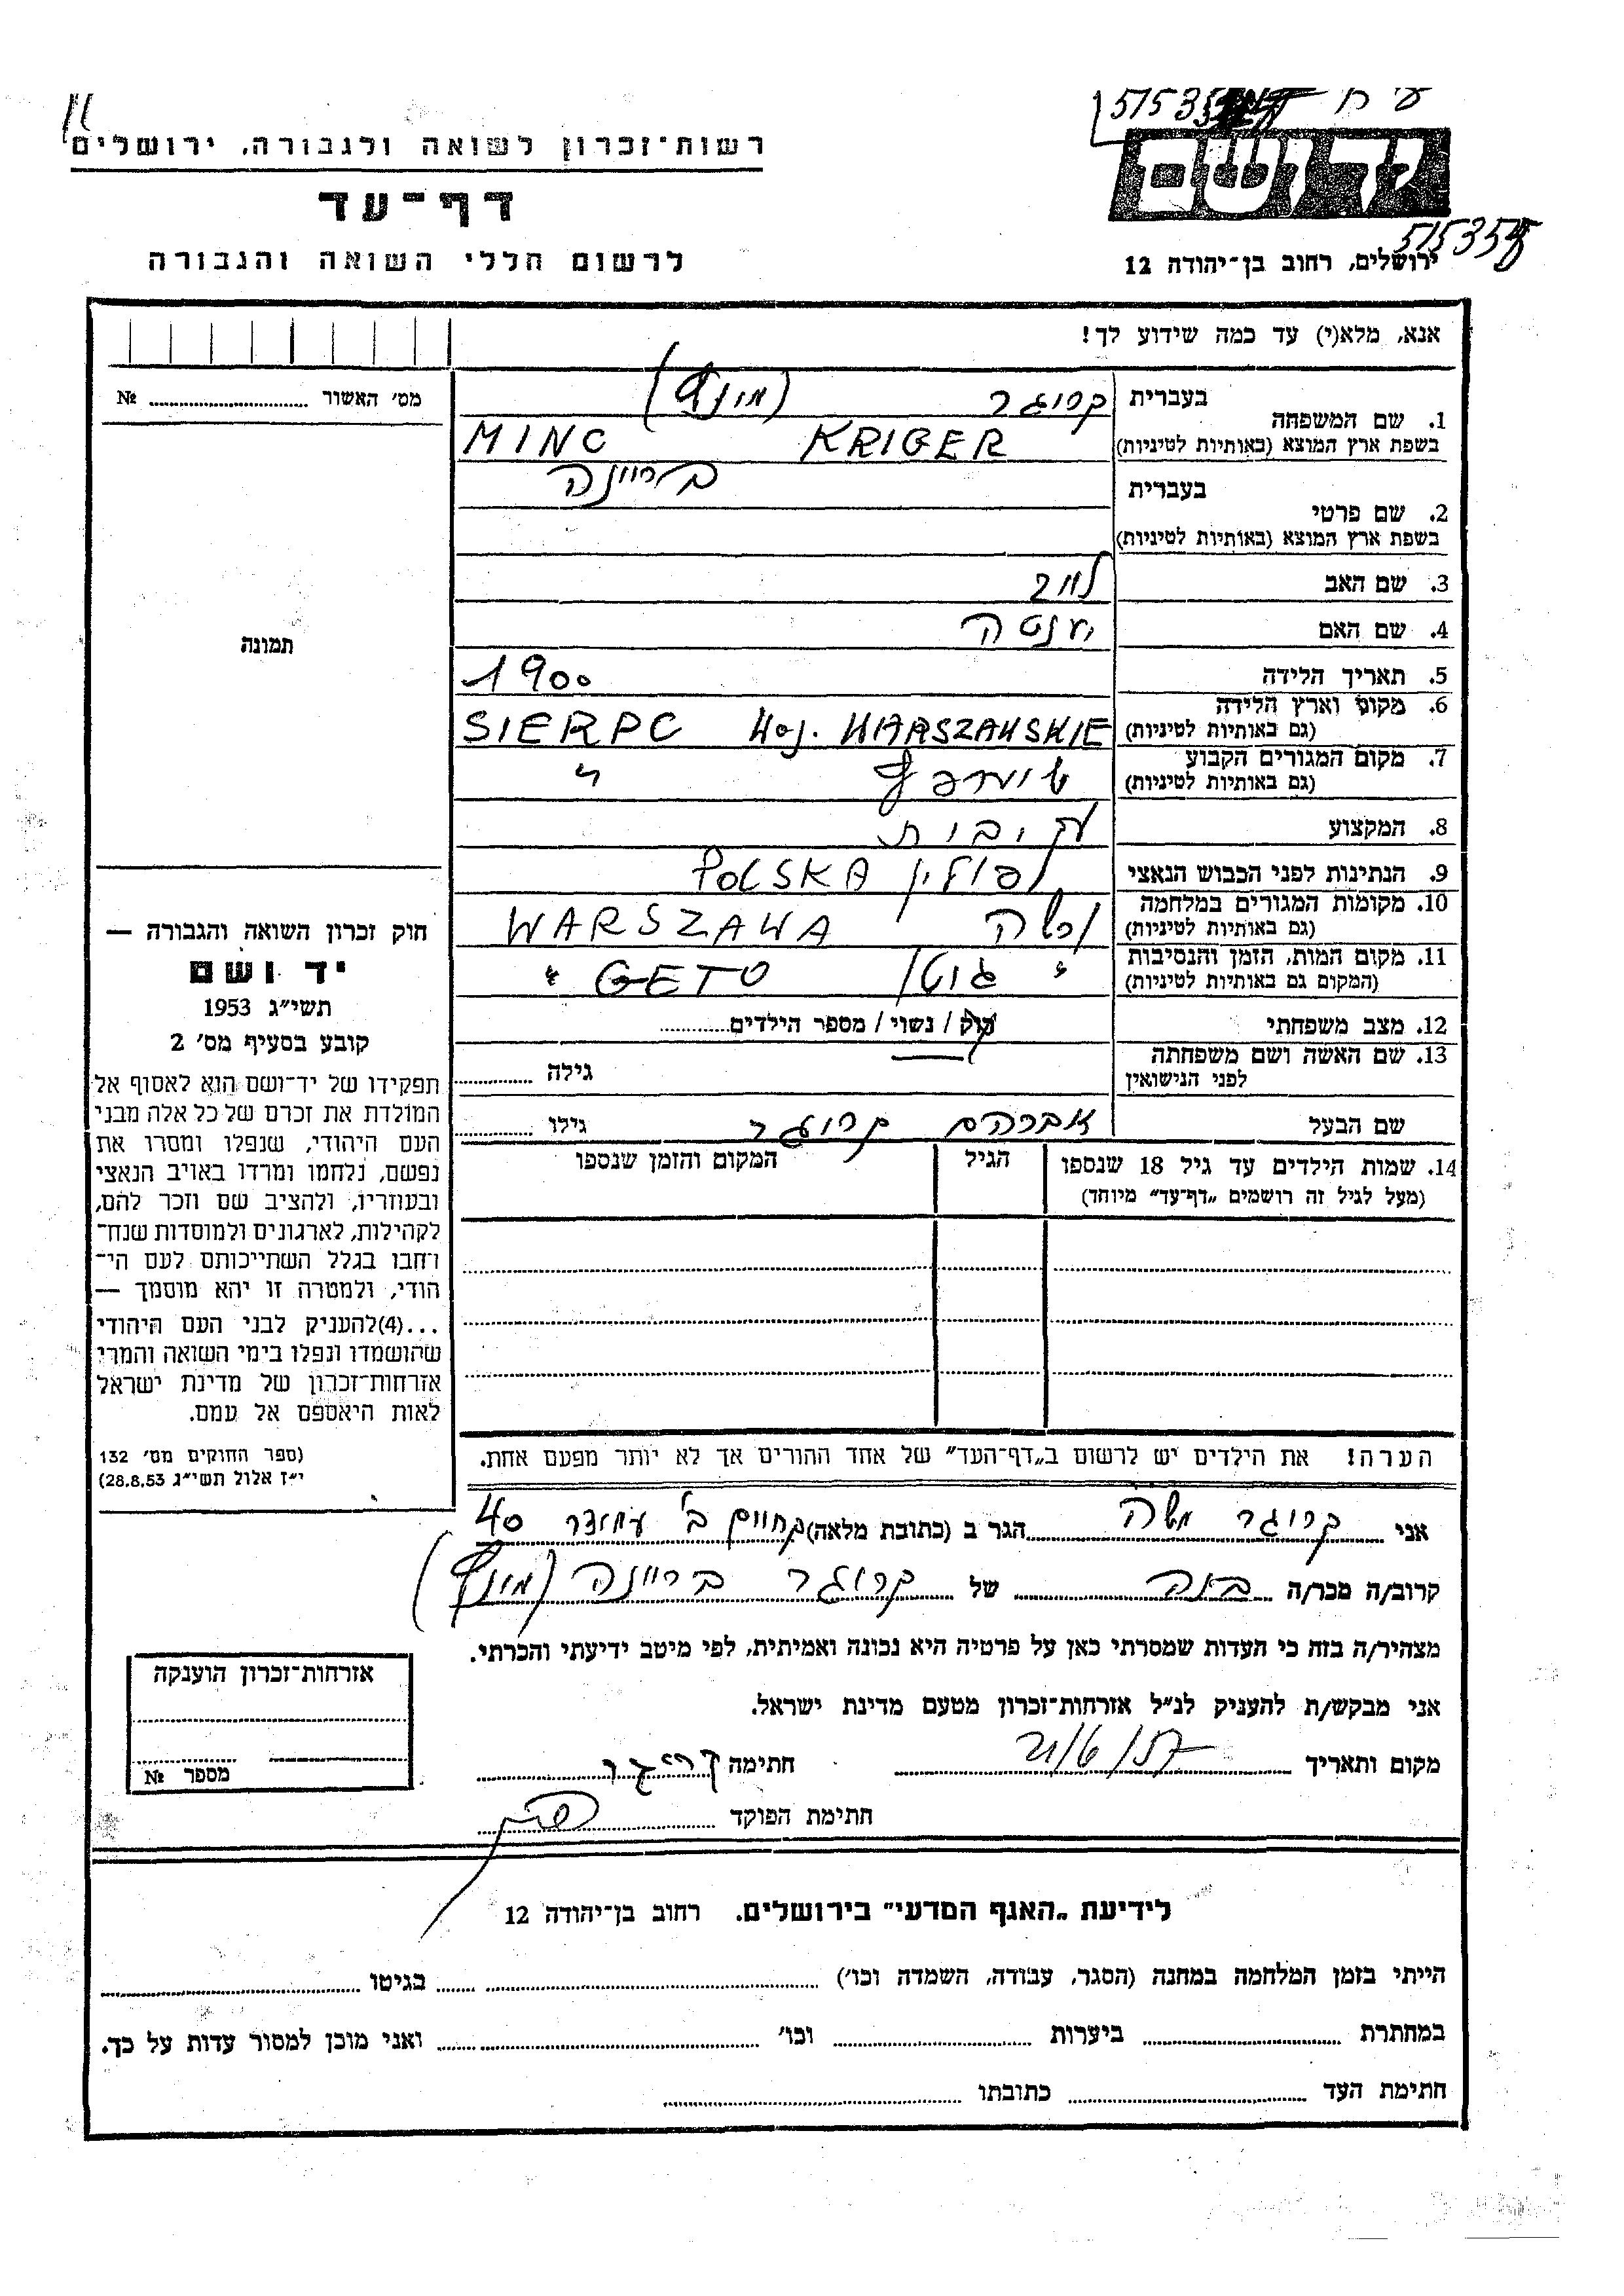 רשות־זכרון לשואה ולגבורה, ירושלים
דף־עד
לרשום חללי השואה והגבורה
יד ושם
ירושלים, רחוב בן־יהודה 12
אנא, מלא(י) עד כמה שידוע לך!
מס' האשור № ........
תמונה
1. שם המשפחה
בעברית קריגר (מינץ)
בשפת ארץ המוצא (באותיות לטיניות) KRIGER MINC
2. שם פרטי
בעברית בריינה
בשפת ארץ המוצא (באותיות לטיניות)
3. שם האב
4. שם האם יענטה
5. תאריך הלידה 1900
6. מקום וארץ הלידה
(גם באותיות לטיניות) SIERPC Woj. WARSZAWSKIE
7. מקום המגורים הקבוע
(גם באותיות לטיניות) "
8. המקצוע
9. הנתינות לפני הכבוש הנאצי פולין POLSKA
10. מקומות המגורים במלחמה
(גם באותיות לטיניות) ורשה WARSZAWA
11. מקום המות, הזמן והנסיבות
(המקום גם באותיות לטיניות) " גטו GETO "
12. מצב משפחתי רוק / נשוי / מספר הילדים........
13. שם האשה ושם משפחתה
לפני הנישואין גילה ........
שם הבעל אברהם קריגר גילו ........
14. שמות הילדים עד גיל 18 שנספו
(מעל לגיל זה רושמים „דף־עד" מיוחד)
הגיל
המקום והזמן שנספו
הערה! את הילדים יש לרשום ב„דף־העד" של אחד ההורים אך לא יותר מפעם אחת.
חוק זכרון השואה והגבורה —
יד ושם
תשי"ג 1953
קובע בסעיף מס' 2
תפקידו של יד־ושם הוא לאסוף אל
המולדת את זכרם של כל אלה מבני
העם היהודי, שנפלו ומסרו את
נפשם, נלחמו ומרדו באויב הנאצי
ובעוזריו, ולהציב שם וזכר להם,
לקהילות, לארגונים ולמוסדות שנח־
רבו בגלל השתייכותם לעם הי־
הודי, ולמטרה זו יהא מוסמך —
...(4)להעניק לבני העם היהודי
שהושמדו ונפלו בימי השואה והמרי
אזרחות־זכרון של מדינת ישראל
לאות היאספם אל עמם.
(ספר החוקים מס' 132
י"ז אלול תשי"ג 28.8.53)
אני קריגר משה הגר ב (כתובת מלאה) 40
קרוב/ה מכר/ה בנה של קריגר בריינה (מינץ)
מצהיר/ה בזה כי העדות שמסרתי כאן על פרטיה היא נכונה ואמיתית, לפי מיטב ידיעתי והכרתי.
אני מבקש/ת להעניק לנ"ל אזרחות־זכרון מטעם מדינת ישראל.
מקום ותאריך חתימה קריגר
חתימת הפוקד
אזרחות־זכרון הוענקה
מספר №
לידיעת „האגף המדעי" בירושלים. רחוב בן־יהודה 12
הייתי בזמן המלחמה במחנה (הסגר, עבודה, השמדה וכו') ........ בגיטו ........
במחתרת ........ ביערות ........ וכו' ........ ואני מוכן למסור עדות על כך.
חתימת העד ........ כתובתו ........